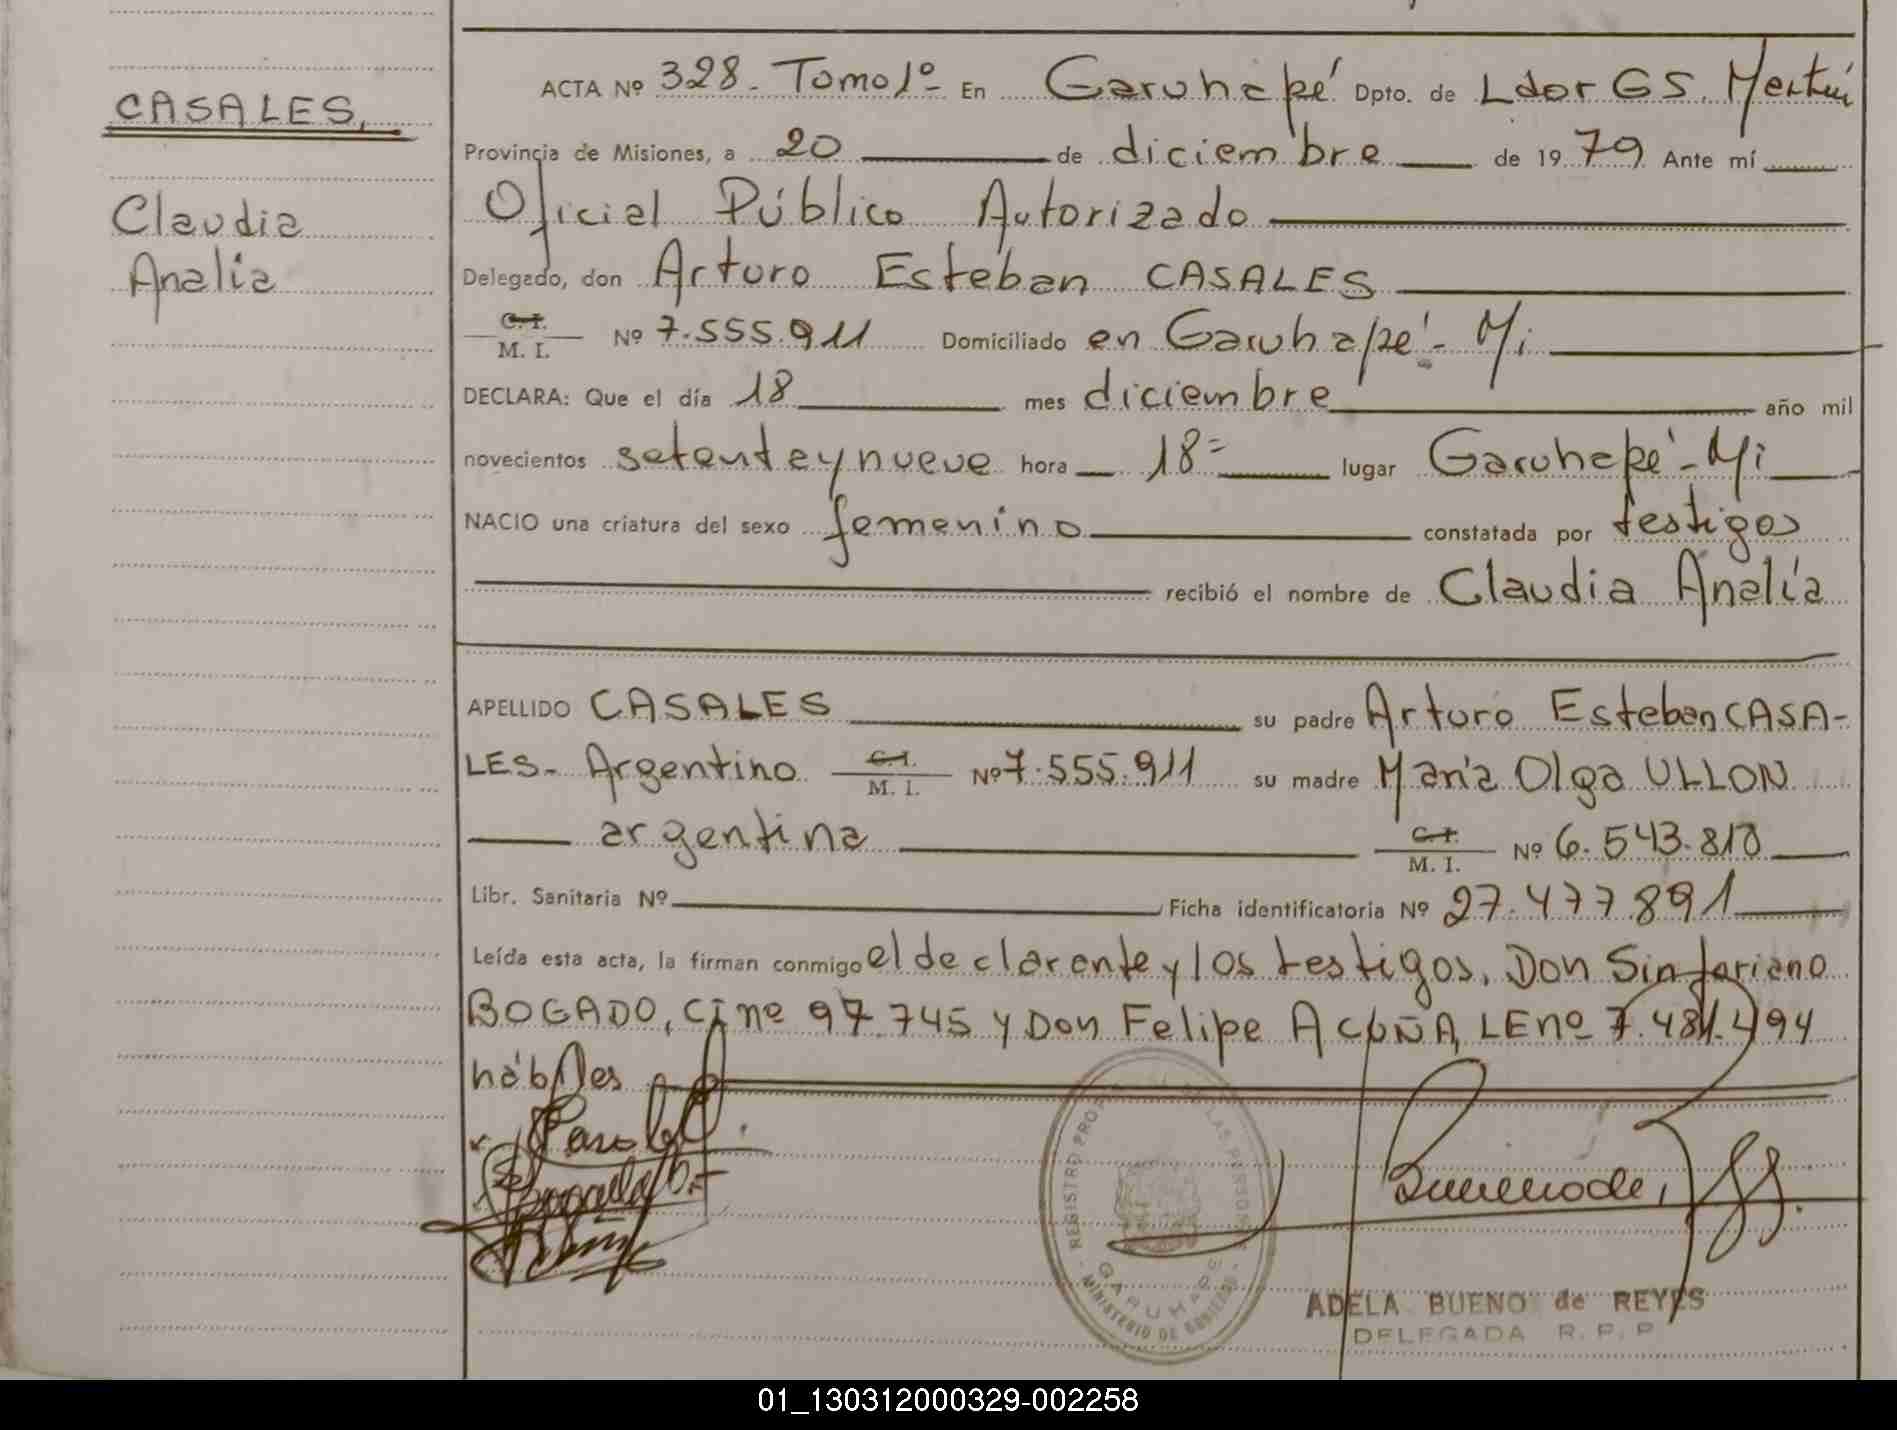 CASALES,
Claudia
Analía
ACTA Nº 328- Tomo 1º- En Garuhapé Dpto. de Ldor GS. Martín
Provincia de Misiones, a 20 de diciembre de 1979 Ante mí
Oficial Público Autorizado
Delegado, don Arturo Esteban CASALES
C. I.
M. I. Nº 7.555.911 Domiciliado en Garuhapé- Mi
DECLARA: Que el día 18 mes diciembre año mil
novecientos setenta y nueve hora 18= lugar Garuhapé- Mi
NACIO una criatura del sexo femenino constatada por testigos
recibió el nombre de Claudia Analía
APELLIDO CASALES su padre Arturo Esteban CASA-
LES- Argentino C. I. M. I. Nº 7.555.911 su madre María Olga ULLON
argentina C. I. M. I. Nº 6.543.810
Libr. Sanitaria Nº Ficha identificatoria Nº 27.477.891
Leída esta acta, la firman conmigo el declarante y los testigos, Don Sinforiano
BOGADO, CI nº 97.745 y Don Felipe ACUÑA, LE nº 7.481.494
hábiles
REGISTRO PRO DE LAS PERSONAS
GARUHAPE
MINISTERIO DE GOBIERNO
ADELA BUENO de REYES
DELEGADA R. P. P.
01_130312000329-002258